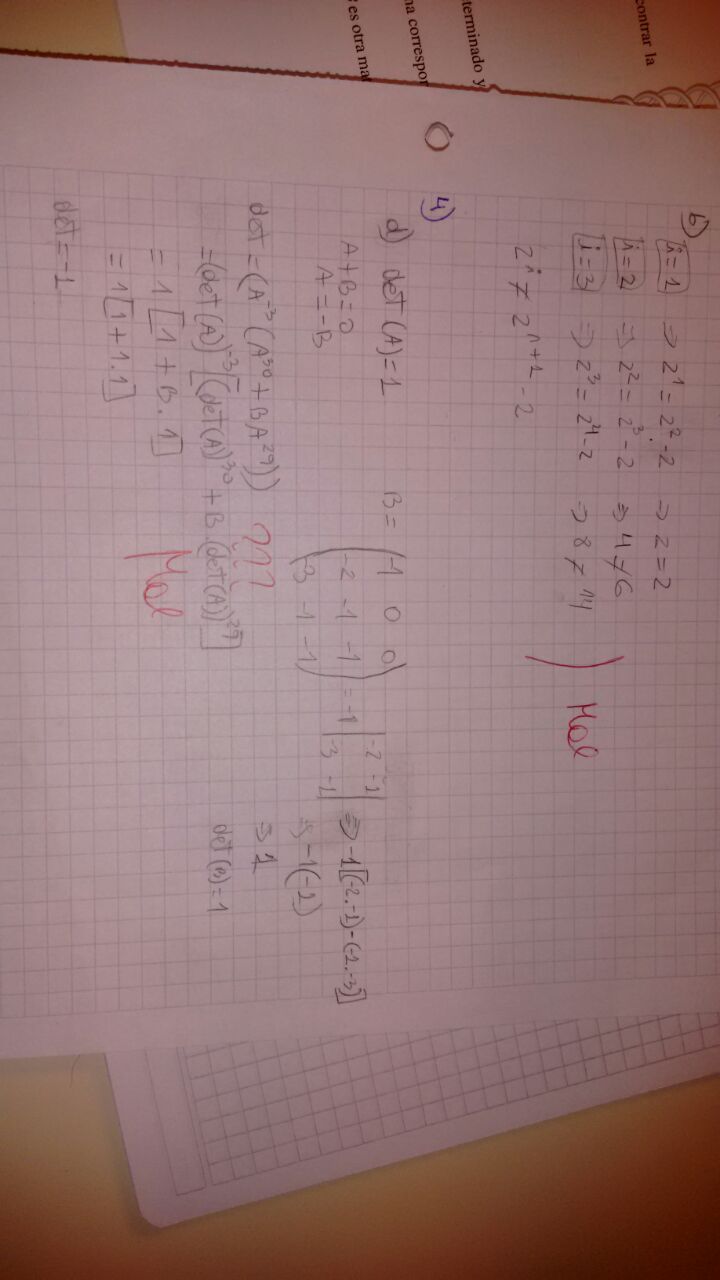 contrar la
terminado y
na correspor
es otra mat
b) i=1 ⇒ 2¹ = 2² - 2 ⇒ 2 = 2
i=2 ⇒ 2² = 2³ - 2 ⇒ 4 ≠ 6
i=3 ⇒ 2³ = 2⁴ - 2 ⇒ 8 ≠ 14
Mal
2ⁱ ≠ 2ⁱ⁺¹ - 2
4)
d) det (A) = 1
A + B = 0
A = -B
B = (-1 0 0
-2 -1 -1
-3 -1 -1) = -1 |-2 -1
-3 -1| ⇒ -1[(-2.-1) - (-1.-3)]
⇒ -1(-1)
⇒ 1
det(B) = 1
det = (A⁻³ (A³⁰ + B A²⁹)) ???
= (det (A))⁻³ [(det(A))³⁰ + B. (det(A))²⁹]
= 1 [1 + B . 1]
Mal
= 1 [1 + 1.1]
det = -1